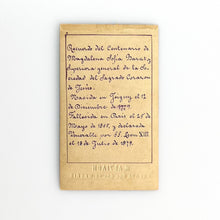 Recuerdo del Centenario de
Magdalena Sofia Barat y
Superiora general de la So
ciedad del Sagrado Corazon
de Jesús.
Nacida en Joigny el 12
de Diciembre de 1779.
Fallecida en Paris el 25 de
Mayo de 1865, y declarada
Venerable por SS. Leon XIII
el 18 de Julio de 1879.